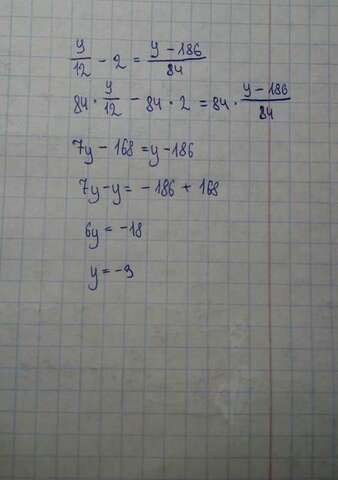 y/12 - 2 = (y - 186)/84
84 · y/12 - 84 · 2 = 84 · (y - 186)/84
7y - 168 = y - 186
7y - y = - 186 + 168
6y = -18
y = -3